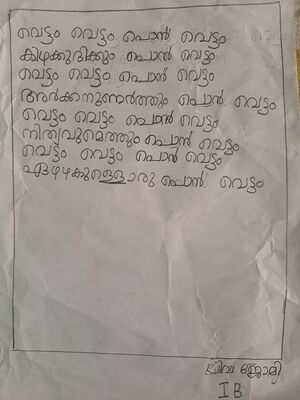 വെട്ടം വെട്ടം പൊൻ വെട്ടം
കിഴക്കുദിക്കും പൊൻ വെട്ടം
വെട്ടം വെട്ടം പൊൻ വെട്ടം
അർക്കനുണർത്തും പൊൻ വെട്ടം
വെട്ടം വെട്ടം പൊൻ വെട്ടം
നിത്യവുമെത്തും പൊൻ വെട്ടം
വെട്ടം വെട്ടം പൊൻ വെട്ടം
ഏഴഴകുള്ളൊരു പൊൻ വെട്ടം
ജോമി
I B